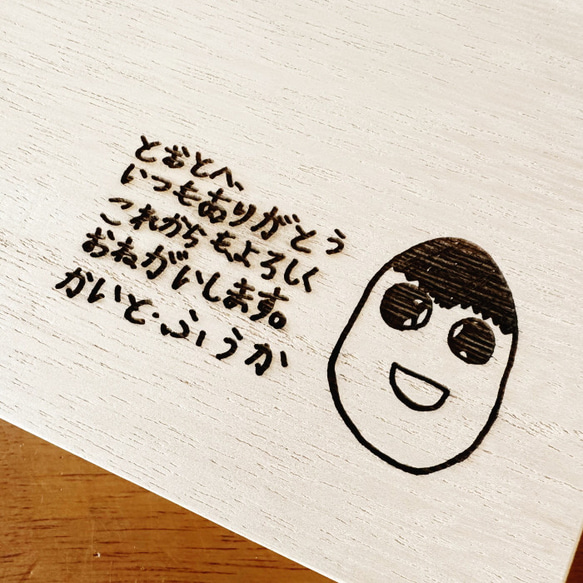 とおとへ、
いつもありがとう
これからもよろしく
おねがいします。
かいと・ふうか